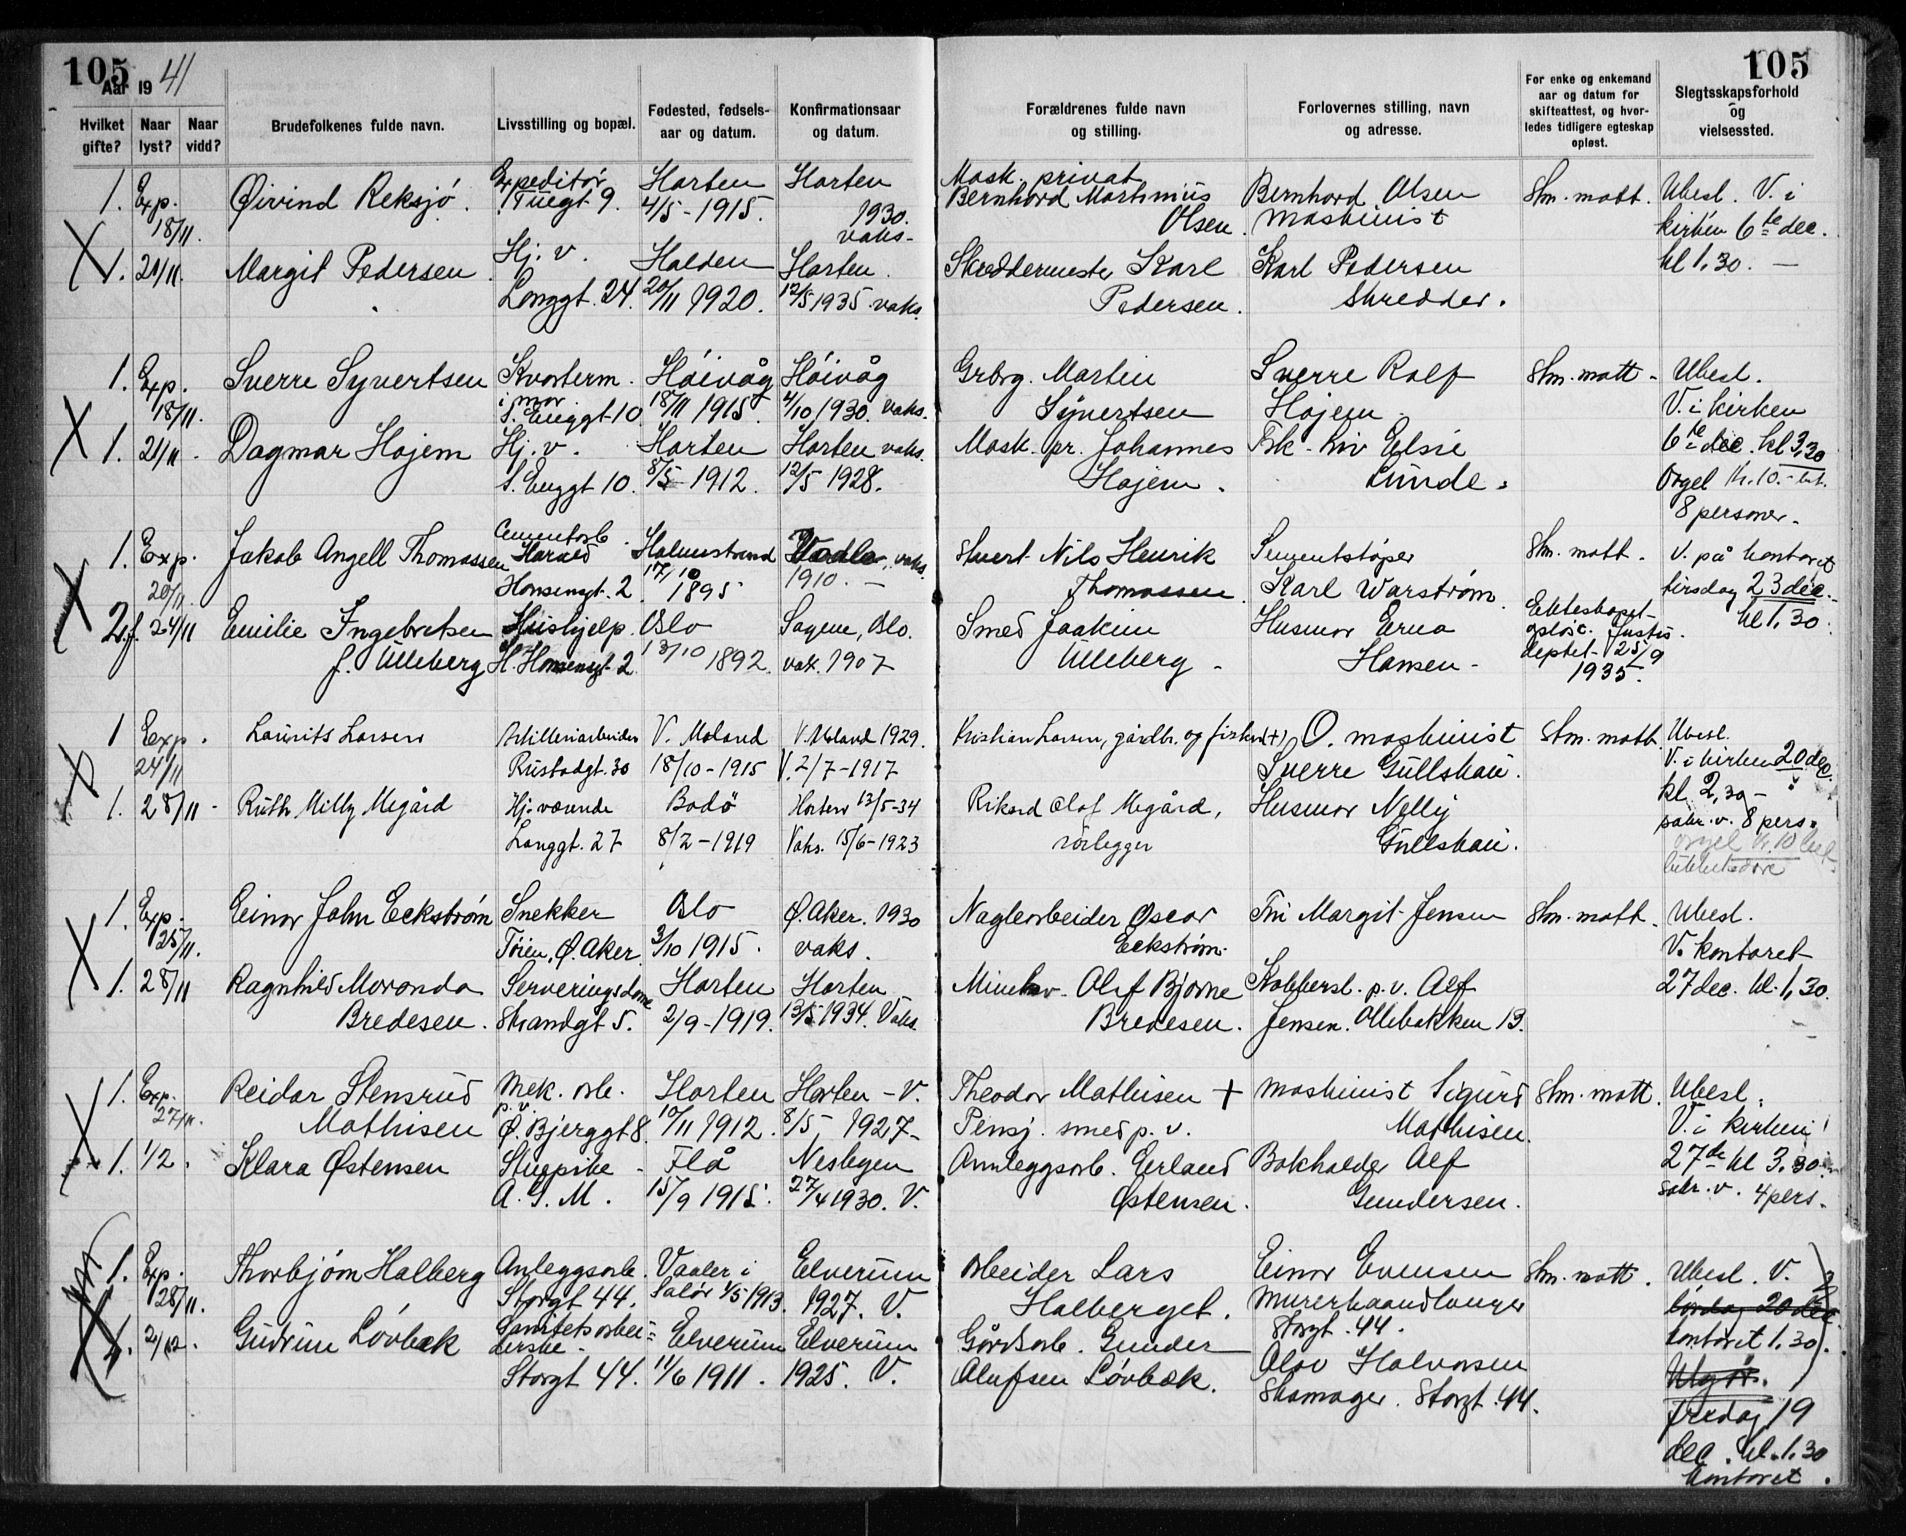 105
Aar 1941
Hvilket gifte?
Naar lyst?
Naar vidd?
Brudefolkenes fulde navn.
Livsstilling og bopæl.
Fødested, fødsels-
aar og datum.
Konfirmationsaar
og datum.
105
Forældrenes fulde navn
og stilling.
Forlovernes stilling, navn
og adresse.
For enke og enkemand
aar og datum for
skifteattest, og hvor-
ledes tidligere egteskap
opløst.
Slegtsskapsforhold
og
vielsessted.
1. Exp. 18/11. Øivind Reksjó. Expeditør Tuegt 9. Horten 4/5-1915. Horten 1930. vaks.
Mask. privat Bernhard Martinius Olsen. Bernhard Olsen maskinist Stm. matt. Ubesl. V. i kirken 6te dec. kl 1,30. —
1. 21/11. Margit Pedersen Hj. v. Longgt. 24. Halden 20/11 1920. Horten. 12/5 1935. vaks.
Skreddermester Karl Pedersen. Karl Pedersen Skredder.
1. Exp. 18/11. Sverre Syvertsen Kvarterm. i mar. S. Enggt 10 Hóivåg 18/11 1915 Hóivåg 4/10 1930. vaks.
Grbrg. Martin Syvertsen Sverre Rolf Hojem Stm. matt - Ubesl. V. i kirken 6te dec. kl 3,30
1. 21/11. Dagmar Hojem Hj. v. S. Enggt 10. Horten 8/5-1912. Horten vaks. 12/5 1928.
Mask. pr. Johannes Hojem. Frk. Liv Elsie Lunde. Orgel kr. 10.- bet. 8 personer.
1. Exp. 20/11 Jakob Angell Thomassen Cementarb. Harald Hansensgt. 2 Holmestrand 17/10 1895 vaks. 1910. —
Nils Henrik Thomassen. Sementstøper Karl Warstrøm Stm. matt. V. på kontoret tirsdag 23 dec. kl 1,30.
2.f. 24/11 Emilie Ingebretsen f. Ulleberg Hushjelp. H. Hansensgt 2 Oslo 13/10 1892. Sagene, Oslo. vak. 1907
Smed Joakim Ulleberg - Husmor Erna Hansen - Ekteskapet opløst. Justis. deptet. 25/9 1935.
1 Exp. 24/11 Laurits Larsen Artilleriarbeider Rustadgt. 30 V. Moland 18/10-1915 V. Moland 1929. V. 2/7-1917
Kristian Larsen, gårdbr. og fisker (+) O. maskinist Sverre Gullskau. Stm. matt. Ubesl. V. i kirken 20 dec. kl. 2,30 -
1. 28/11 - Ruth Milly Megård Hj. værende Langgt. 27 Bodö 8/2-1919 Horten 13/5-34 Vaks. 15/6-1923
Rikard Olaf Megård, rörlegger Husmor Nelly Gullskau. pakr. v. 8 pers.
orgel kr. 10
1. Exp. 25/11. Einar John Eckstrøm Snekker Tøien, Ø. Aker. Oslo 3/10 1915. Ø. Aker. 1930 vaks.
Naglearbeider Oscar Eckstrøm. Fru Margit Jensen Stm. matt. Ubesl. V. kontoret 27 dec. kl. 1,30.
1. 28/11 Ragnhild Moranda Bredesen. Serveringsdame Strandgt 5. Horten 2/9-1919. Horten 13/5 1934. Vaks.
Olaf Bjarne Bredesen. Kobbersl. p.v. Alf Jensen. Ollebakken 13.
1. Exp. 27/11. Reidar Stensrud Mathisen Mek. arb. p.v. Ø. Bjerggt 8. Horten 10/11 1912. Horten - V. 8/5 1927-
Theodor Mathisen + Pensj. smed p. v. maskinist Sigurd Mathisen. Stm. matt. Ubesl. V. i kirken! 27de kl 3,30
1. 1/2. Klara Østensen Stuepike - A. S. M. Flå 15/9 1915. Nesbyen 27/4 1930. V.
Annleggsarb. Erland Østensen. Bokholder Alf Gundersen. sakr. v. 4 pers.
1. Exp. 28/11. Thorbjørn Halberg Anleggsarb. Storgt 44. Vaaler i Solør 4/5 1913. Elverum 1927. V.
Arbeider Lars Halberget. Einar Evensen Murerhaandlanger Storgt. 44. Stm. matt. Ubesl. V. lørdag 20 dec. kontoret 1.30
1. 2/12. Gudrun Lóvbæk Sanitetsarbei= derske - Storgt 44. Elverum 11/6 1911. Elverum 1925. V.
Gårdsarb. Gunder Olufsen Lóvbæk. Olav Halvorsen Skomager. Storgt. 44. Utgår. fredag 19 dec. kl. 1.30 kontoret.